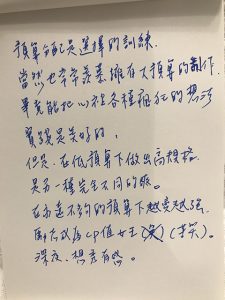 預算分配是選擇的訓練.
當然也常常羨慕擁有大預算的製作.
畢竟能把心裡各種瘋狂的想法
實踐是美好的。
但是,在低預算下做出高規格.
是另一種完全不同的
在永遠不夠的預算下越變越強.
成為CP值女王(笑)
深夜.想有感。